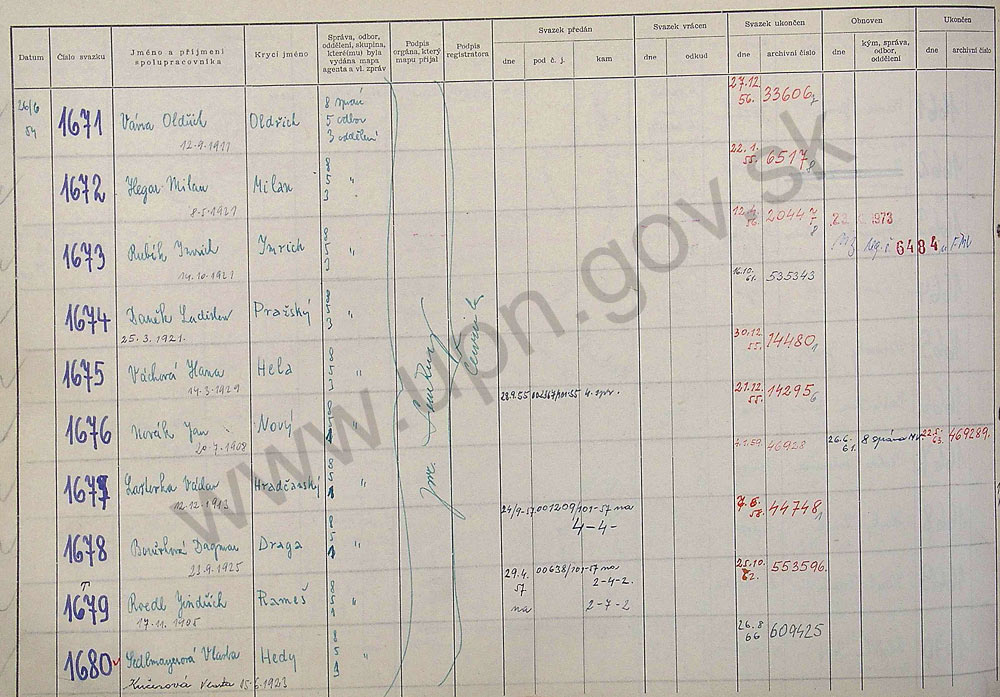 Datum
Číslo svazku
Jméno a příjmení spolupracovníka
Krycí jméno
Správa, odbor, oddělení, skupina, které(mu) byla vydána mapa agenta a vl. zpráv
Podpis orgána, který mapu přijal
Podpis registratora
Svazek předán
dne
pod č. j.
kam
Svazek vrácen
dne
odkud
Svazek ukončen
dne
archivní číslo
Obnoven
dne
kým, správa, odbor, oddělení
Ukončen
dne
archivní číslo
26/6 54
1671
Váňa Oldřich
12-9-1911
Oldřich
8 správ
5 odbor
3 oddělení
27.12. 56. 33606
1672
Hegar Milan
8-5-1921
Milan
8 5 3 "
22.1. 55. 6517
1673
Imrich
14.10.1921
Imrich
8 5 3 "
20447
1973
6484
1674
Daněk Ladislav
25.3.1921.
Pražský
8 5 3 "
16.10. 61. 535343
1675
Váchová Hana
14-3-1929
Hela
8 5 3 "
30.12. 55. 14480
1676
Novák Jan
20-7-1908
Nový
"
28.9.55 4. spr.
21.12. 55. 14295
1677
12-12-1913
Hradčanský
8 5 1 "
46928
26.6. 61. 8 správa
22.5. 63. 469289.
1678
Dagmar
21.9.1925
Draga
8 5 1 "
24/9-57 001209/101-57 na
4-4-
44748
1679
Jindřich
17.11.1905
Rameš
8 5 1 "
29.4. 57 00638/101-57 na
2-4-2.
na 2-7-2
25.10. 62. 553596.
1680
Sedlmayerová Vlasta
Kučerová Vlasta 15-6-1923
Hedy
8 5 1 "
26.8 66 609425
www.upn.gov.sk